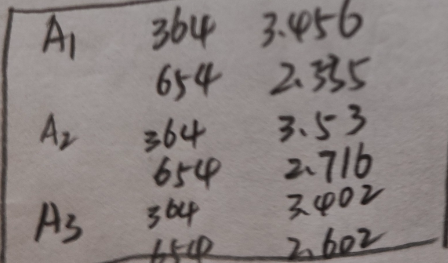 A1 364 3.456
654 2.335
A2 364 3.53
654 2.716
A3 364 3.402
654 2.602